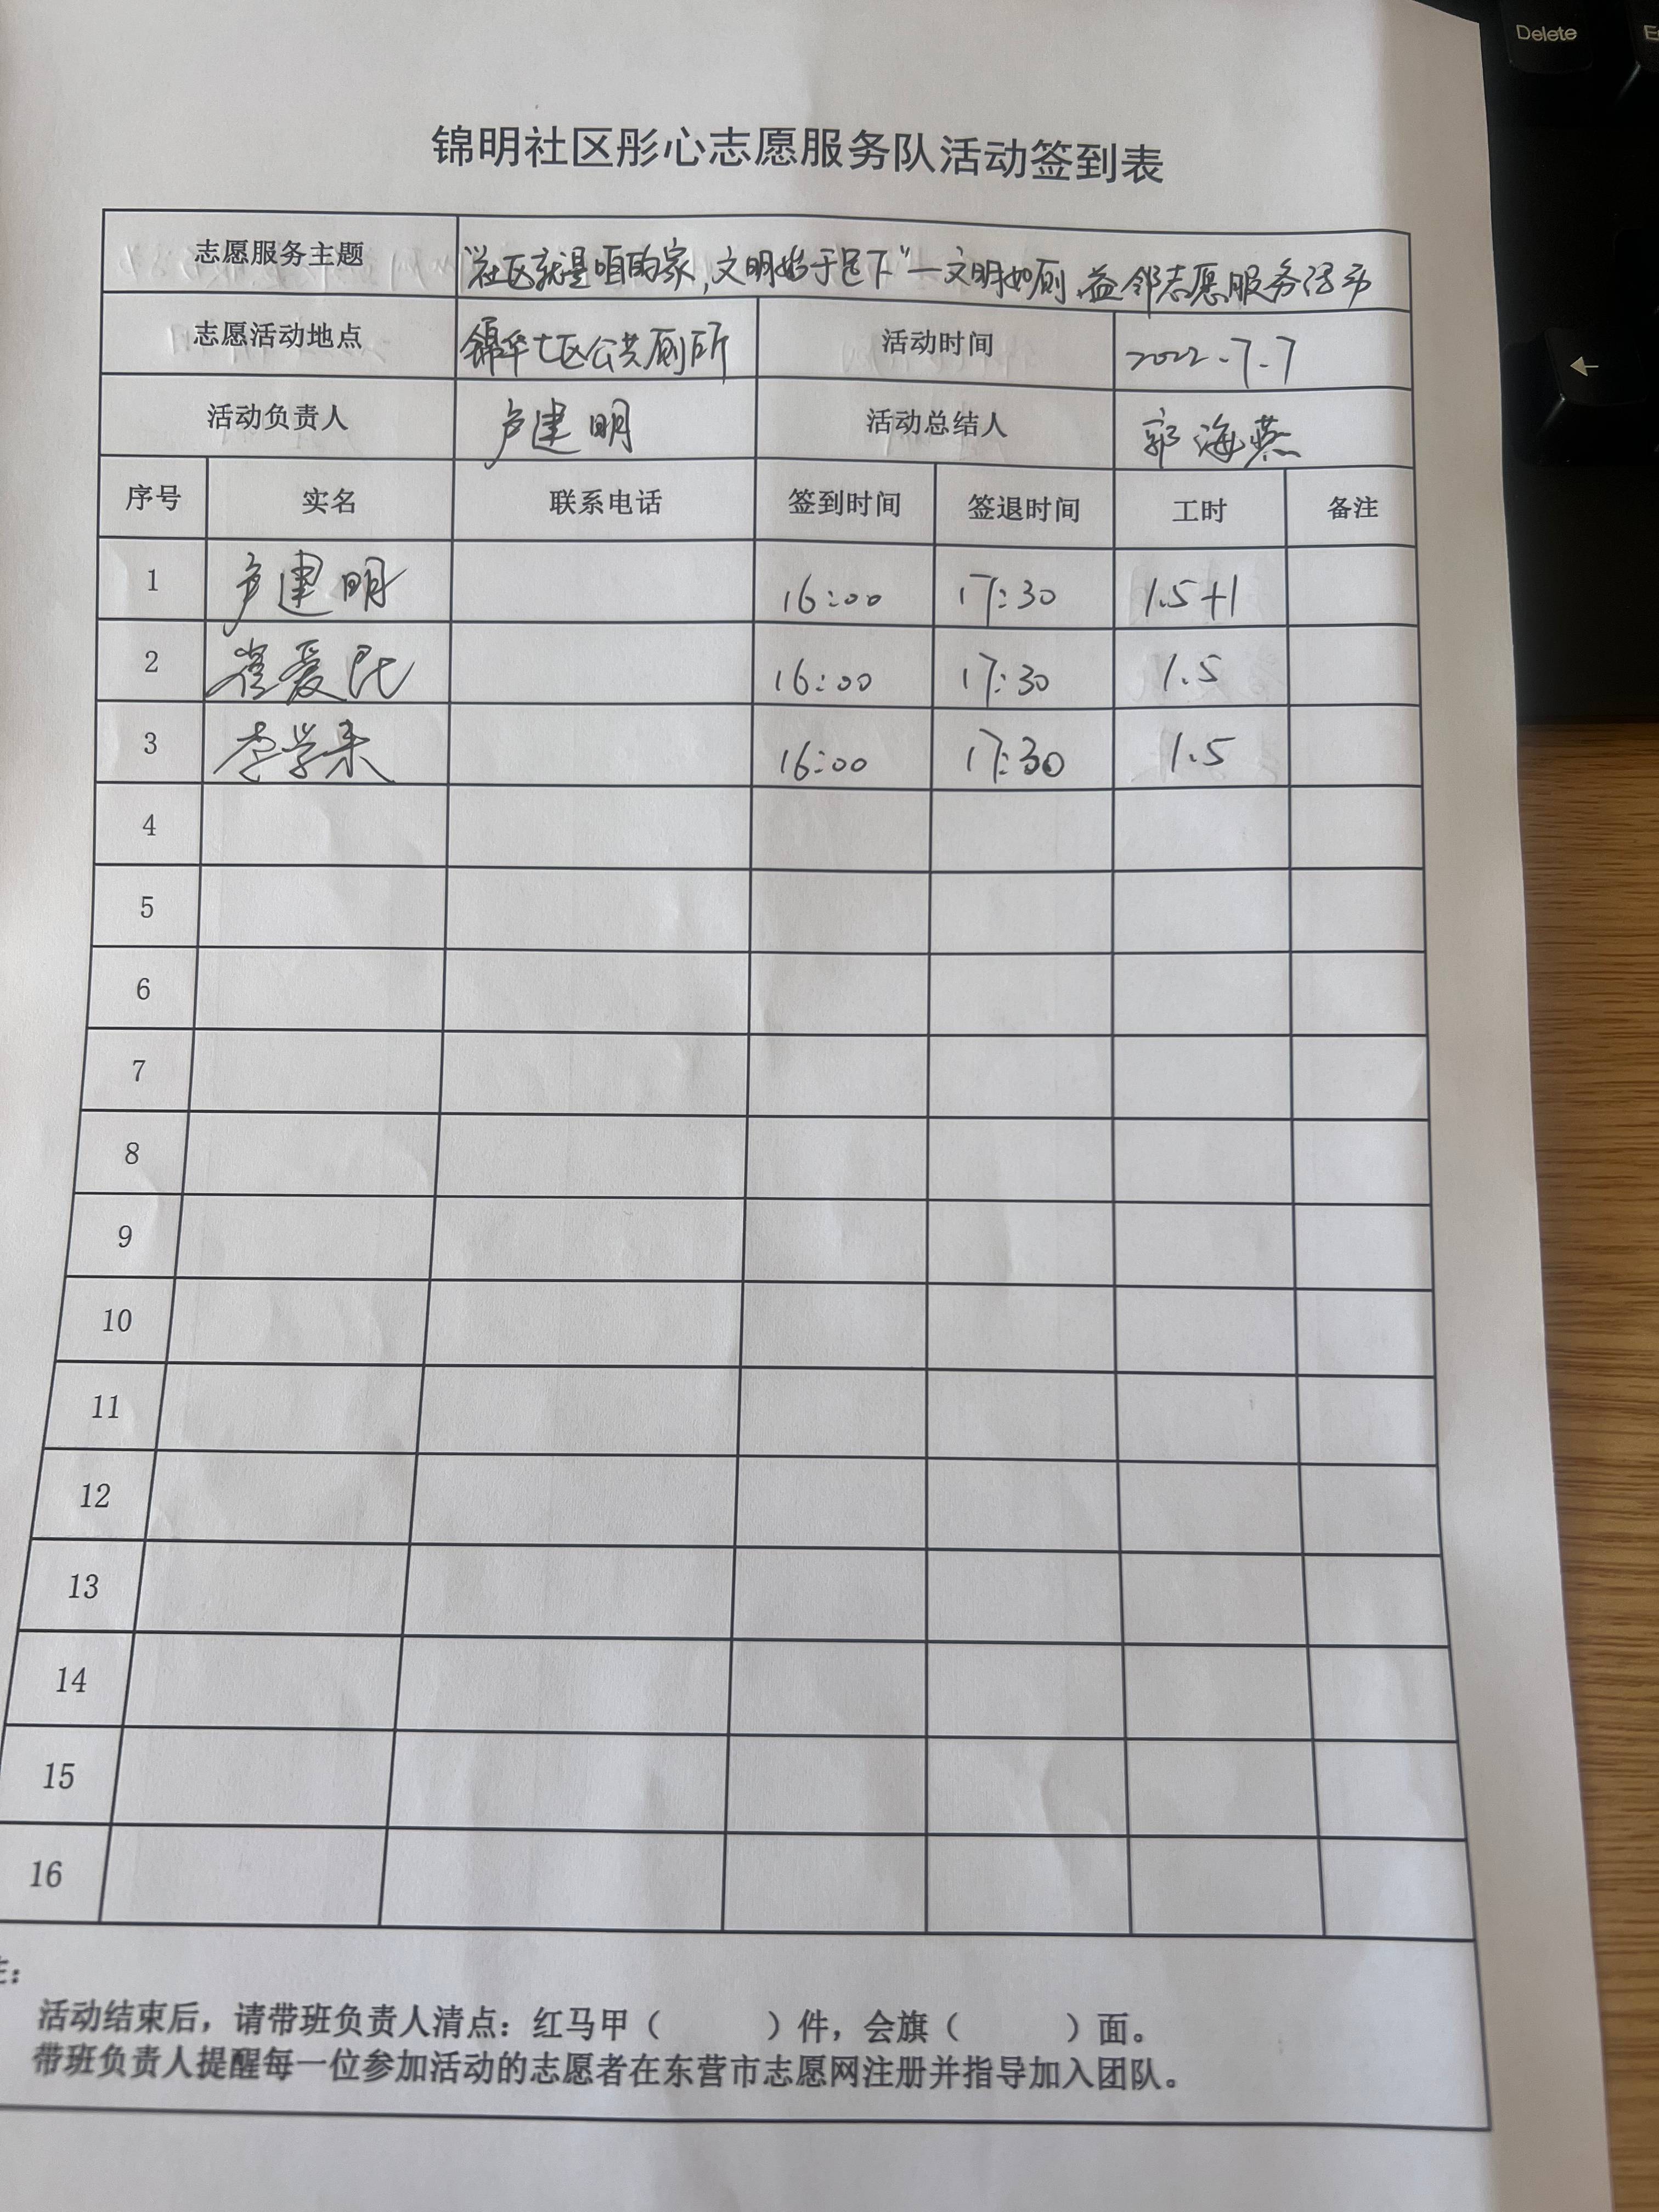 Delete
锦明社区彤心志愿服务队活动签到表
志愿服务主题 "社区就是咱的家,文明始于足下"—文明如厕,益邻志愿服务活动
志愿活动地点 锦华七区公共厕所 活动时间 2022.7.7
活动负责人 卢建明 活动总结人 郭海燕
序号 实名 联系电话 签到时间 签退时间 工时 备注
1 卢建明 16:00 17:30 1.5+1
2 崔爱民 16:00 17:30 1.5
3 李学 16:00 17:30 1.5
4
5
6
7
8
9
10
11
12
13
14
15
16
活动结束后，请带班负责人清点：红马甲（ ）件，会旗（ ）面。
带班负责人提醒每一位参加活动的志愿者在东营市志愿网注册并指导加入团队。